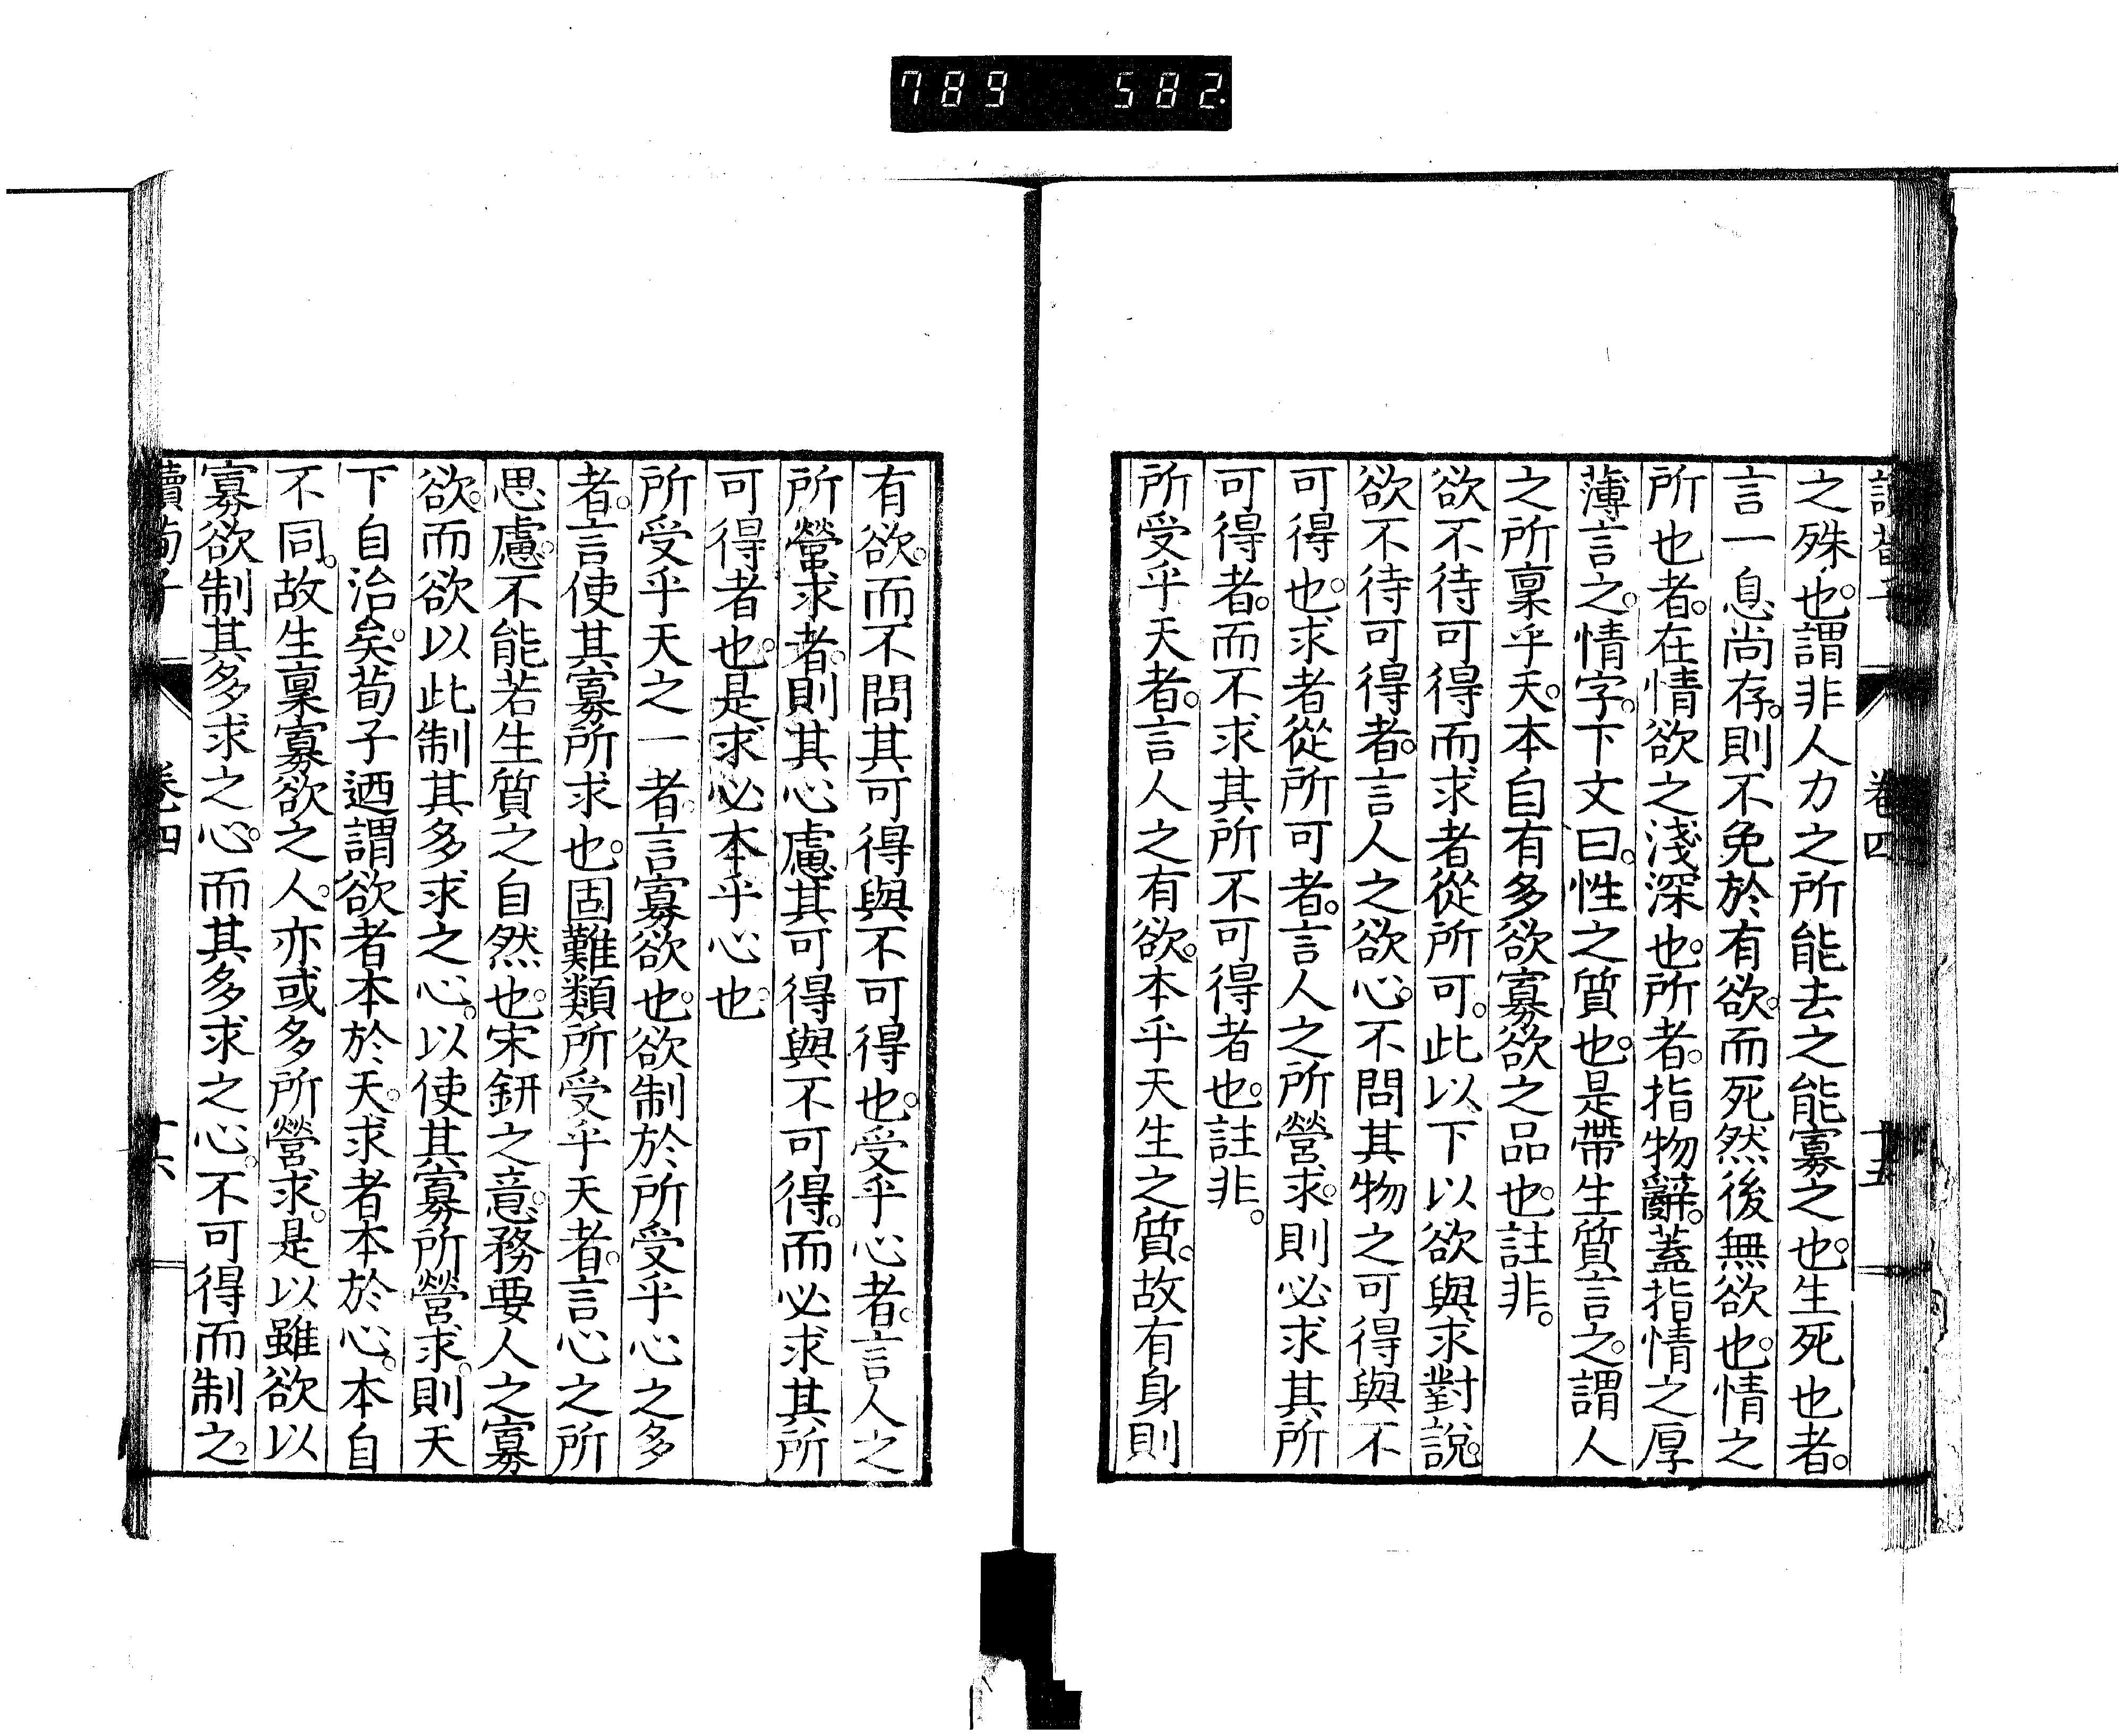 789 582
讀荀子 卷四 十五
之殊也。謂非人力之所能去之能寡之也。生死也者。
言一息尚存。則不免於有欲。而死然後無欲也。情之
所也者。在情欲之淺深也。所者。指物辭。蓋指情之厚
薄言之。情字。下文曰。性之質也。是帶生質言之。謂人
之所稟乎天。本自有多欲寡欲之品也。註非。
欲不待可得而求者從所可。此以下以欲與求對說。
欲不待可得者。言人之欲心。不問其物之可得與不
可得也。求者從所可者。言人之所營求。則必求其所
可得者。而不求其所不可得者也。註非。
所受乎天者。言人之有欲。本乎天生之質。故有身則
有欲。而不問其可得與不可得也。受乎心者。言人之
所營求者。則其心慮其可得與不可得。而必求其所
可得者也。是求必本乎心也。
所受乎天之一者。言寡欲也。欲制於所受乎心之多
者。言使其寡所求也。固難類所受乎天者。言心之所
思慮。不能若生質之自然也。宋鈃之意。務要人之寡
欲。而欲以此制其多求之心。以使其寡所營求。則天
下自治矣。荀子迺謂欲者本於天。求者本於心。本自
不同。故生稟寡欲之人。亦或多所營求。是以雖欲以
寡欲制其多求之心。而其多求之心。不可得而制之。
讀荀子 卷四 十六